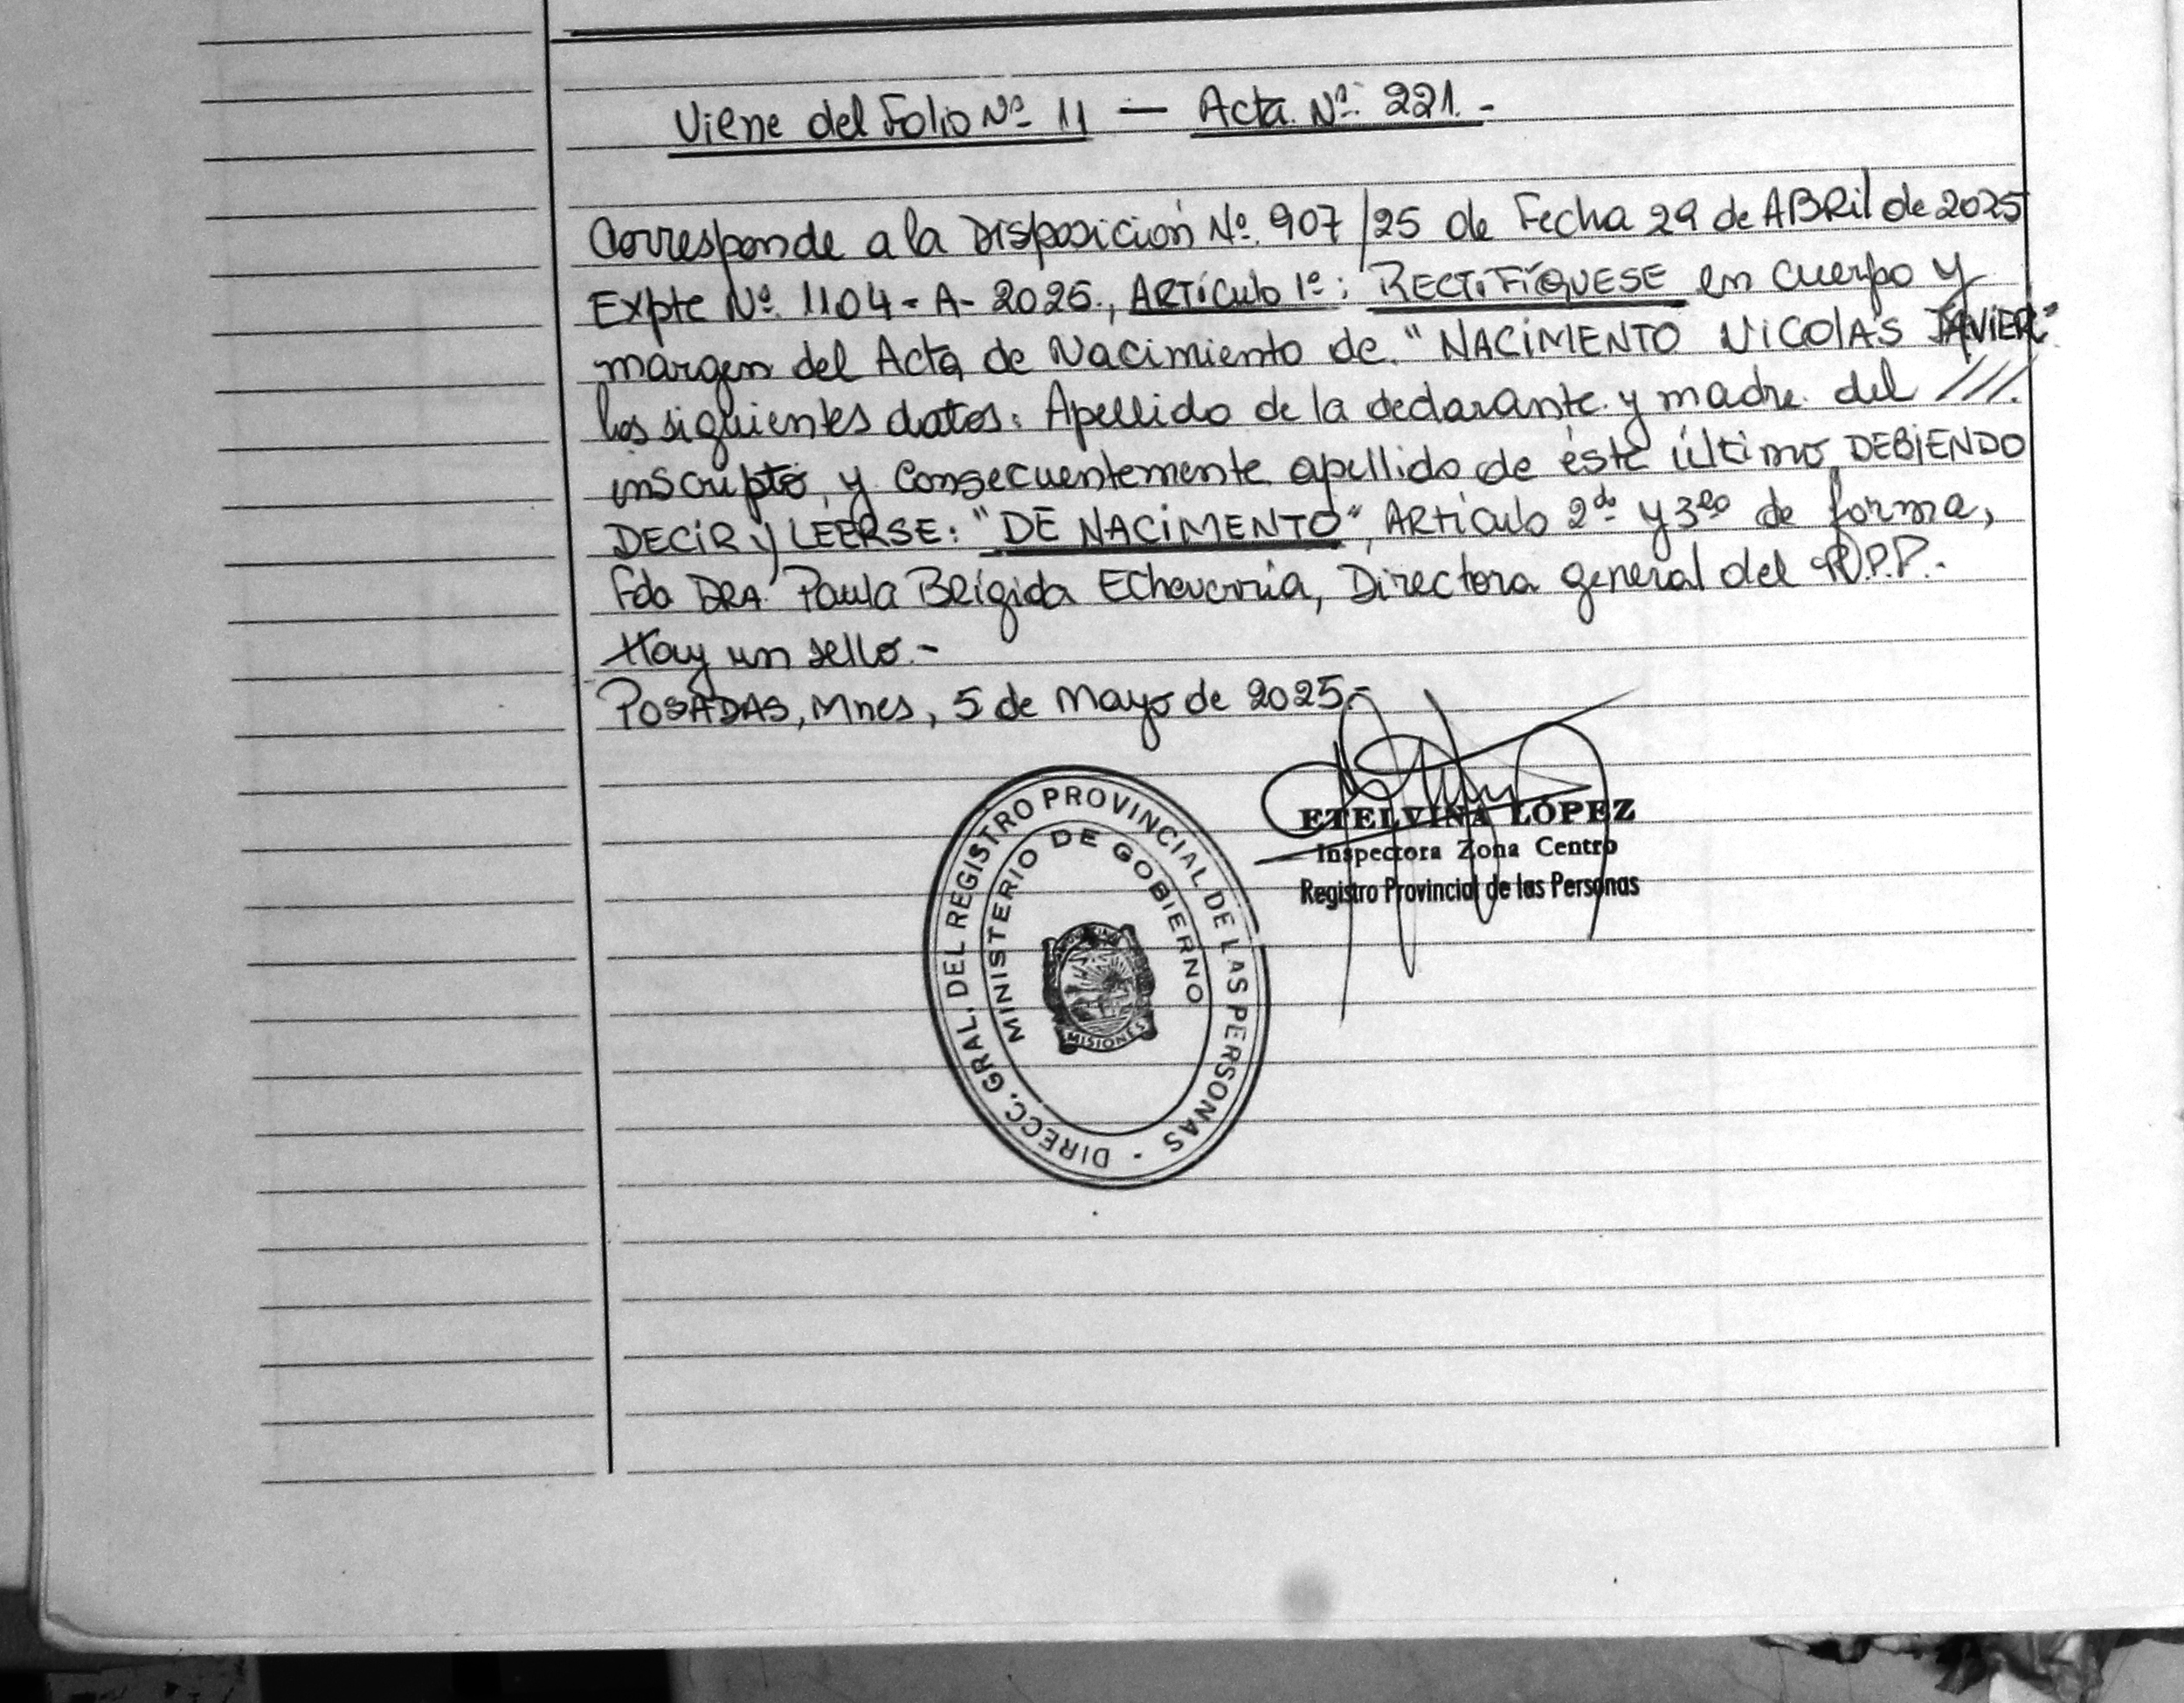 Viene del Folio Nº 11 — Acta. Nº: 221.-
Corresponde a la Disposición Nº. 907/25 de Fecha 29 de ABRil de 2025
Expte Nº. 1104-A-2025., ARTículo 1º: RECTIFÍQUESE en cuerpo y
margen del Acta de Nacimiento de "NACIMENTO NICOLAS JAVIER"
los siguientes datos: Apellido de la declarante y madre del ///.
inscripto, y consecuentemente apellido de éste último, DEBIENDO
DECIR y LEERSE: "DE NACIMENTO", ARtículo 2do y 3ero de forma,
Fdo DRA. Paula Brígida Echeverría, Directora general del R.P.P.-
Hay un sello.-
POSADAS, Mnes, 5 de Mayo de 2025.-
ETELVINA LÓPEZ
Inspectora Zona Centro
Registro Provincial de las Personas
DIRECC. GRAL. DEL REGISTRO PROVINCIAL DE LAS PERSONAS -
MINISTERIO DE GOBIERNO
MISIONES